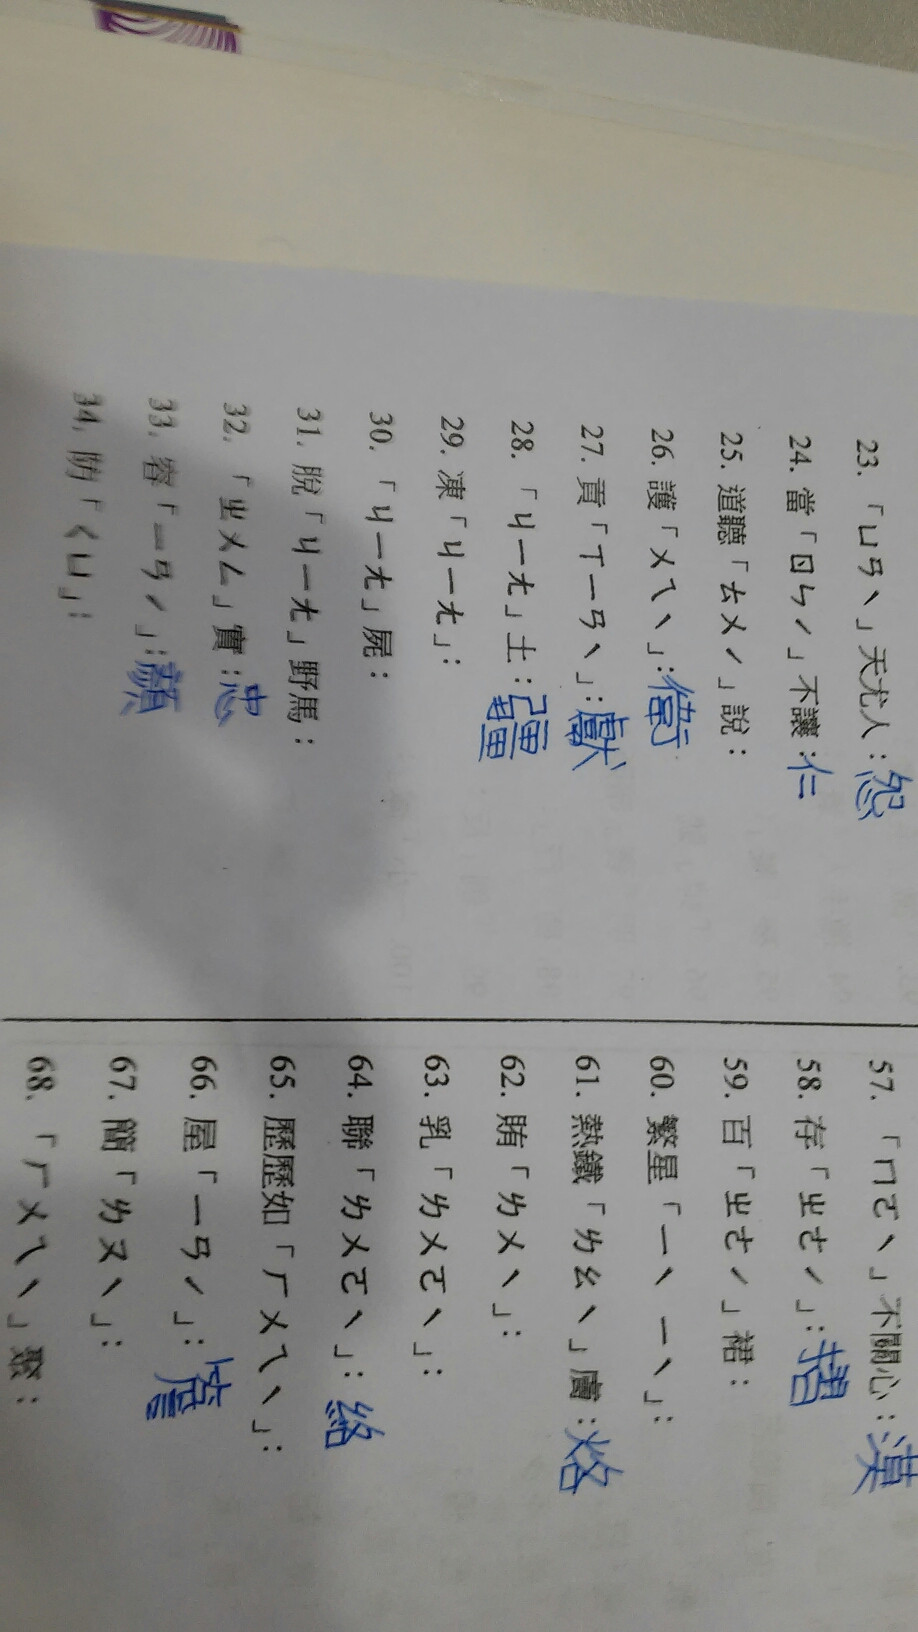 23. 「ㄩㄢˋ」天尤人：怨
24. 當「ㄖㄣˊ」不讓：仁
25. 道聽「ㄊㄨˊ」說：
26. 護「ㄨㄟˋ」：衛
27. 貢「ㄒㄧㄢˋ」：獻
28. 「ㄐㄧㄤ」土：疆
29. 凍「ㄐㄧㄤ」：
30. 「ㄐㄧㄤ」屍：
31. 脫「ㄐㄧㄤ」野馬：
32. 「ㄓㄨㄥ」實：忠
33. 容「ㄧㄢˊ」：顏
34. 防「ㄑㄩ」：
57. 「ㄇㄛˋ」不關心：漠
58. 存「ㄓㄜˊ」：摺
59. 百「ㄓㄜˊ」裙：
60. 繁星「ㄧˋ ㄧˋ」：
61. 熱鐵「ㄌㄠˋ」膚：烙
62. 賄「ㄌㄨˋ」：
63. 乳「ㄌㄨㄛˋ」：
64. 聯「ㄌㄨㄛˋ」：絡
65. 歷歷如「ㄏㄨㄟˋ」：
66. 屋「ㄧㄢˊ」：簷
67. 簡「ㄌㄡˋ」：
68. 「ㄏㄨㄟˋ」聚：